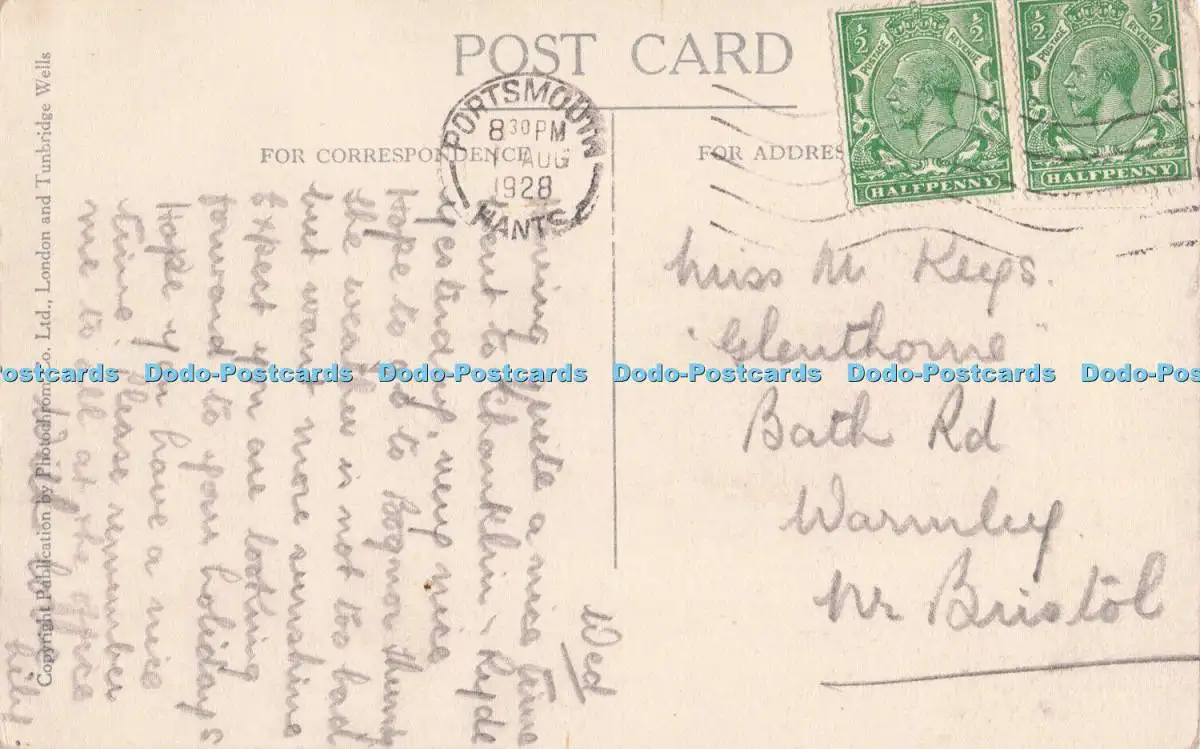 POST CARD
PORTSMOUTH
8 30 PM
1 AUG
1928
HANTS.
½ ½
POSTAGE REVENUE
HALFPENNY
½ ½
POSTAGE REVENUE
HALFPENNY
FOR CORRESPONDENCE
FOR ADDRES
Wed
quite a nice time
went to Shanklin & Ryde
yesterday, very nice
Hope to go to Bognor Thurs
the weather is not too bad
but want more sunshine
Expect you are looking
forward to your holidays
Hope you have a nice
time. Please remember
me to all at the office
Lily
Miss M Keys.
"Glenthorne"
Bath Rd
Warmley
Nr Bristol
Copyright Publication by Photochrom Co. Ltd., London and Tunbridge Wells
ostcards Dodo-Postcards Dodo-Postcards Dodo-Postcards Dodo-Postcards Dodo-Pos